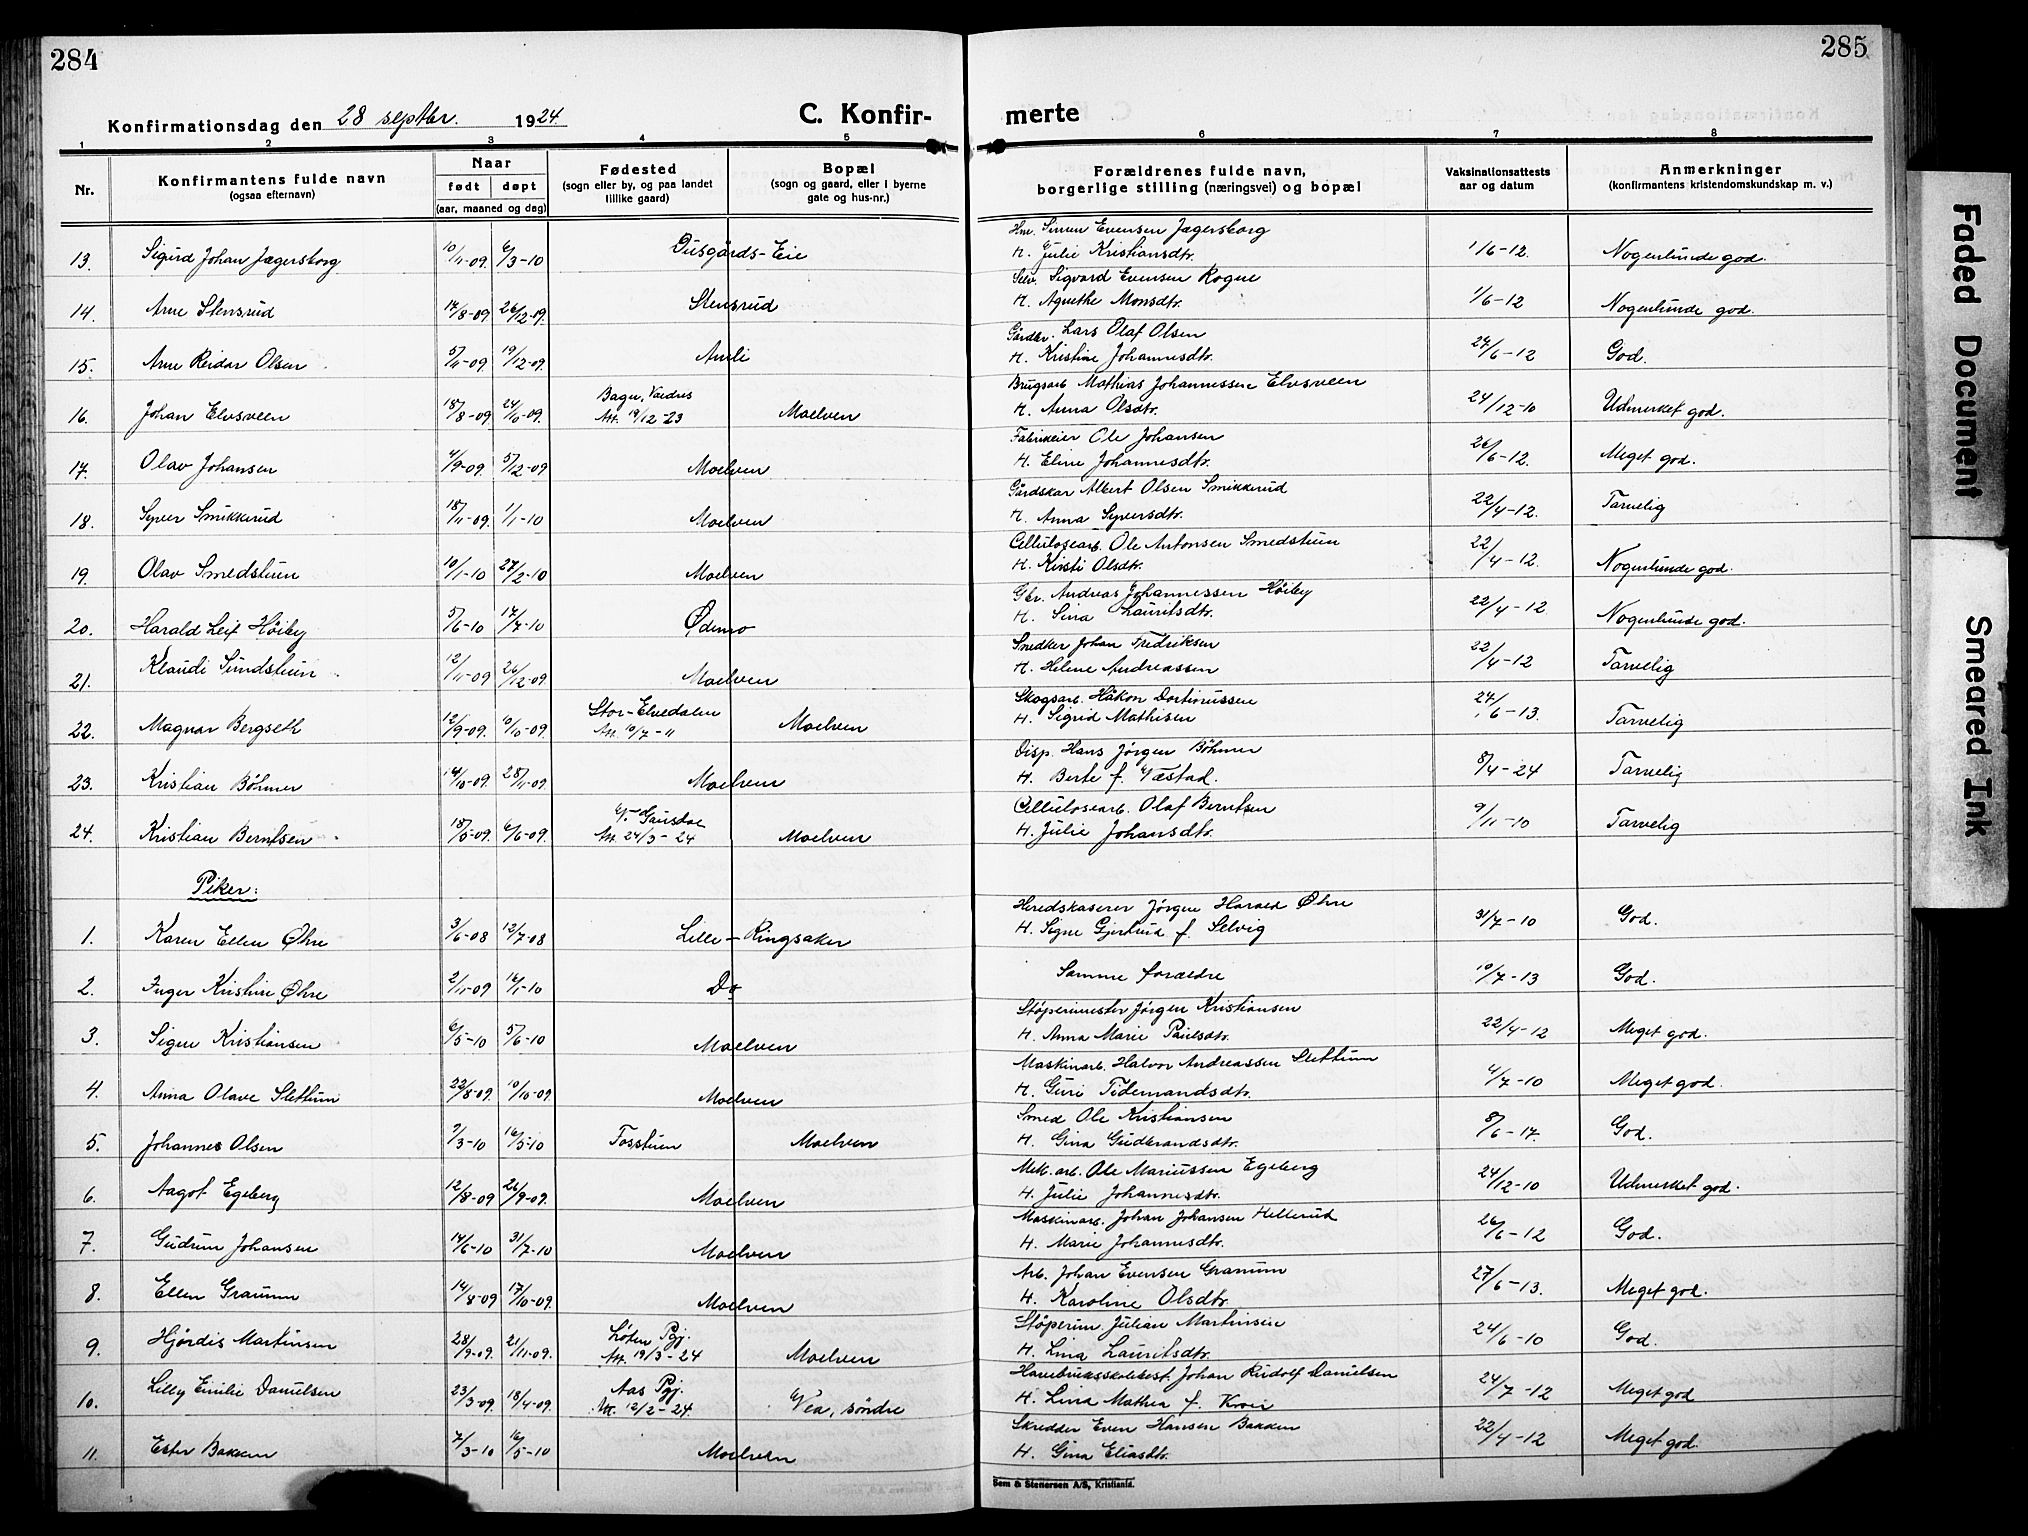 284
285
Konfirmationsdag den 28 septbr. 1924.
C. Konfir-
merte
1 2 3 4 5 6 7 8
Nr.
Konfirmantens fulde navn
(ogsaa efternavn)
Naar
født døpt
(aar, maaned og dag)
Fødested
(sogn eller by, og paa landet
tillike gaard)
Bopæl
(sogn og gaard, eller i byerne
gate og hus-nr.)
Forældrenes fulde navn,
borgerlige stilling (næringsvei) og bopæl
Vaksinationsattests
aar og datum
Anmerkninger
(konfirmantens kristendomskundskap m. v.)
Hm. Simen Evensen Jægersborg
13. Sigurd Johan Jægersborg 10/11-09. 6/3-10 Dusgårds-Eie H. Julie Kristiansdtr. 1/6-12. Nogenlunde god.
Selv. Sigvard Evensen Rogne
14. Arne Stensrud 14/8-09. 26/12-09. Stensrud H. Agnethe Monsdtr. 1/6-12 Nogenlunde god.
Gårdbr. Lars Olaf Olsen
15. Arne Reidar Olsen 5/11-09. 19/12-09. Aurli H. Kristine Johannesdtr. 24/6-12 God.
Bagn, Valdres
Brugsarb. Mathias Johannessen Elvsveen
16. Johan Elvsveen 18/8-09. 24/10-09. Att. 19/12-23 Moelven H. Anna Olsdtr. 24/12-10 Udmerket god.
Fabrikeier Ole Johansen
17. Olav Johansen 4/9-09. 5/12-09 Moelven H. Eline Johannesdtr. 26/6-12. Meget god.
Gårdskar Albert Olsen Smikkerud
18. Syver Smikkerud 18/11-09. 1/1-10 Moelven H. Anna Syversdtr. 22/4-12. Tarvelig
Cellulosearb. Ole Antonsen Smedstuen
19. Olav Smedstuen 10/1-10 27/2-10 Moelven H. Kirsti Olsdtr. 22/4-12. Nogenlunde god.
Gbr. Andreas Johannessen Høiby
20. Harald Leif Høiby 5/6-10 17/7-10 Ødemo H. Sina Lauritsdtr. 22/4-12 Nogenlunde god.
Snedker Johan Fredriksen
21. Klaudi Sundstuen 12/11-09 26/12-09. Moelven H. Helene Andreassen 22/4-12 Tarvelig
Stor-Elvedalen
Skogsarb. Håkon
22. Magnar Bergseth 12/9-09. 10/10-09. Att. 10/7-11 Moelven H. Sigrid Mathisen 24/6-13. Tarvelig
Disp. Hans Jørgen Böhmer
23. Kristian Böhmer 14/10-09. 28/11-09. Moelven H. Berte f. Næstad. 8/4-24 Tarvelig
V. Gausdal
Cellulosearb. Olaf Berntsen
24. Kristian Berntsen 18/5-09. 6/6-09. Att. 24/3-24 Moelven H. Julie Johansdtr. 9/11-10 Tarvelig
Piker:
Heredskaserer Jørgen Harald Øhre
1. Karen Ellen Øhre 3/6-08 12/7-08 Lille-Ringsaker H. Signe Gjertrud f. Selvig 31/7-10 God.
2. Inger Kristine Øhre 2/11-09 16/1-10 Do Samme forældre 10/7-13 God.
Støperimester Jørgen Kristiansen
3. Signe Kristiansen 6/5-10 5/6-10 Moelven H. Anna Marie Paulsdtr. 22/4-12 Meget god.
Maskinarb. Halvor Andreassen Slettum
4. Anna Olave Slettum 22/8-09. 10/10-09 Moelven H. Guri Tidemandsdtr. 4/7-10 Meget god.
Smed Ole Kristiansen
5. Johannes Olsen 7/3-10 16/5-10 Fosstuen Moelven H. Gina Gudbrandsdtr. 8/6-17. God.
Mek. arb. Ole Mariussen Egeberg
6. Aagot Egeberg 12/8-09 26/9-09. Moelven H. Julie Johannesdtr. 24/12-10 Udmerket god.
Maskinarb. Johan Johansen Hellerud
7. Gudrun Johansen 14/6-10 31/7-10 Moelven H. Marie Johannesdtr. 26/6-12 God.
Arb. Johan Evensen Granum
8. Ellen Granum 14/8-09 17/10-09. Moelven H. Karoline Olsdtr. 27/6-13. Meget god.
Løten Pgj.
Støperim. Julian Martinsen
9. Hjørdis Martinsen 28/9-09. 21/11-09. Att. 19/3-24 Moelven H. Lina Lauritsdtr. 24/6-10 God.
Aas Pgj.
Havebruksskolebest. Johan Rudolf Danielsen
10. Lilly Emilie Danielsen 23/3-09. 18/4-09. Att. 12/2-24. Vea, søndre H. Lina Mathea f. 24/7-12 Meget god
Skredder Even Hansen Bakken
11. Ester Bakken 7/3-10 16/5-10 Moelven H. Gina Eliasdtr. 22/4-12 Meget god.
Sem & Stenersen A/S, Kristiania.
Faded Document
Smeared Ink